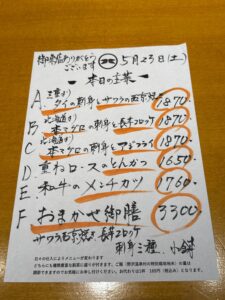 御来店ありがとう
ございます 5月23日(土)
本日の主菜
A. 三重すり
タイの刺身とサワラの西京焼き 1870.
B 北海道すり
本マグロの刺身と長芋コロッケ 1870.
C 北海道すり
本マグロの刺身とアジフライ 1870.
D. 重ねロースのとんかつ 1650.
E. 和牛のメンチカツ 1760.
F おまかせ御膳 3300
サワラ西京焼き 長芋コロッケ
刺身三種、小鉢
日々の仕入によりメニューが変わります